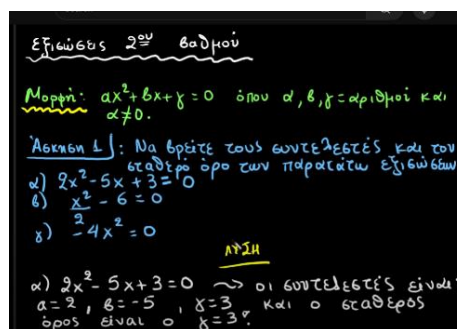 εξισώσεις 2ου βαθμού
Μορφή: αx²+βx+γ=0 όπου α,β,γ=αριθμοί και
α≠0.
Άσκηση 1: Να βρείτε τους συντελεστές και τον
σταθερό όρο των παρατάτω εξισώσεων
α) 2x²-5x+3=0
β) x²/2 - 6=0
γ) -4x²=0
ΛΥΣΗ
α) 2x²-5x+3=0 ~> οι συντελεστές είναι
α=2, β=-5, γ=3 και ο σταθερός
όρος είναι ο γ=3.